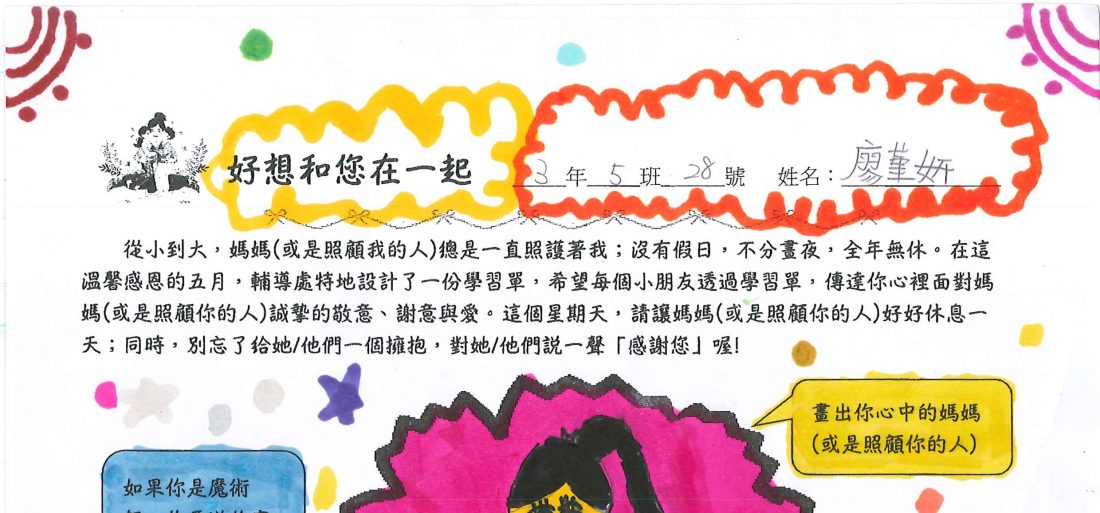 好想和您在一起 3年5班28號 姓名：廖堇妍
從小到大，媽媽(或是照顧我的人)總是一直照護著我；沒有假日，不分晝夜，全年無休。在這
溫馨感恩的五月，輔導處特地設計了一份學習單，希望每個小朋友透過學習單，傳達你心裡面對媽
媽(或是照顧你的人)誠摯的敬意、謝意與愛。這個星期天，請讓媽媽(或是照顧你的人)好好休息一
天；同時，別忘了給她/他們一個擁抱，對她/他們說一聲「感謝您」喔!
畫出你心中的媽媽
(或是照顧你的人)
如果你是魔術